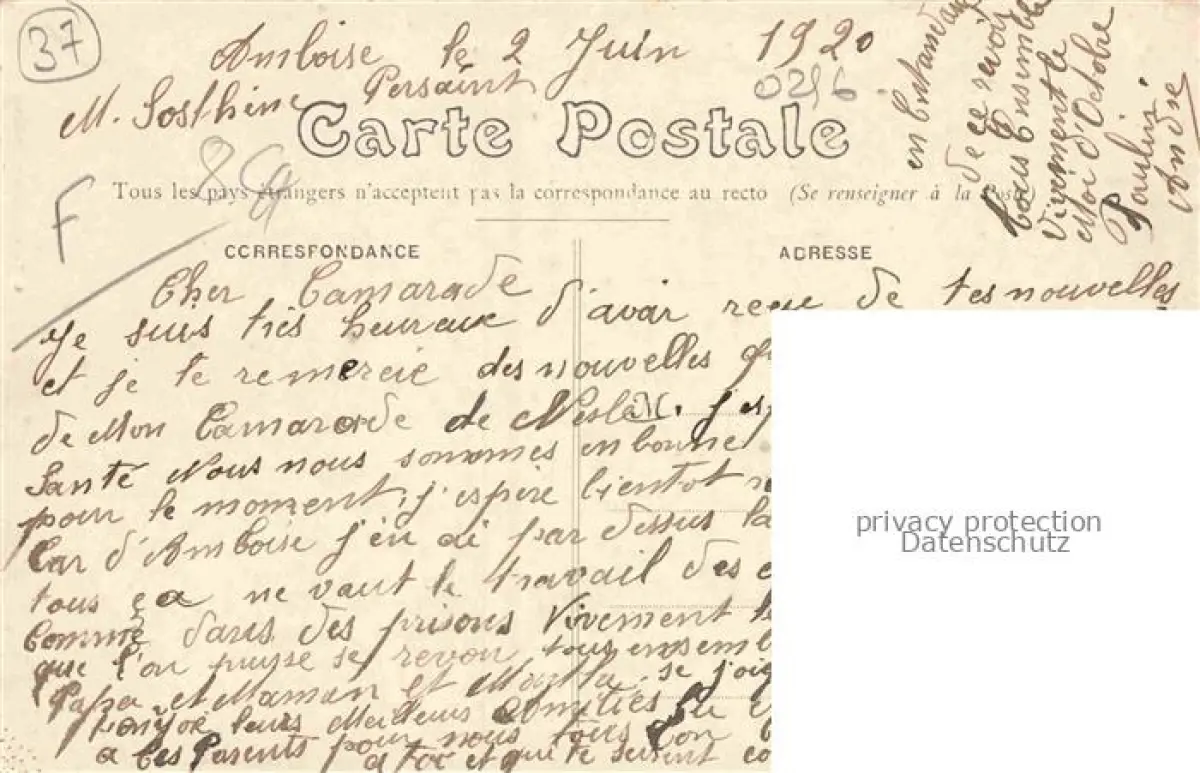 37
Amboise le 2 Juin 1920
M. Sosthène Persaint
0296
Carte Postale
Tous les pays étrangers n'acceptent pas la correspondance au recto (Se renseigner à la Poste)
F
CORRESPONDANCE
ADRESSE
Cher Camarade
je suis très heureux d'avoir reçu de tes nouvelles
et je te remercie des nouvelles
de Mon Camarade de
Santé Nous nous sommes en bonne
pour le moment, j'espère bientot
Car d'Amboise j'en ai par dessus la
tous ça ne vaut le travail des
Comme dans des prisons Vivement
que l'on puisse se revoir tous ensemb
Papa et Maman et se joig
leurs Meilleurs amitiés
a tes Parents pour nous tous
a toi et qui te
en attendant
de ce revoir
tous Ensemble
Vivement le
Moi d'Octobre
Paulin
André
privacy protection
Datenschutz